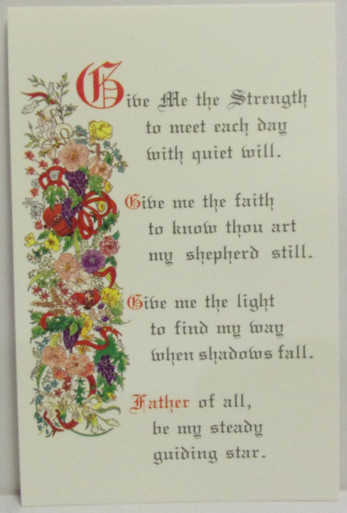 Give Me the Strength
to meet each day
with quiet will.
Give me the faith
to know thou art
my shepherd still.
Give me the light
to find my way
when shadows fall.
Father of all,
be my steady
guiding star.